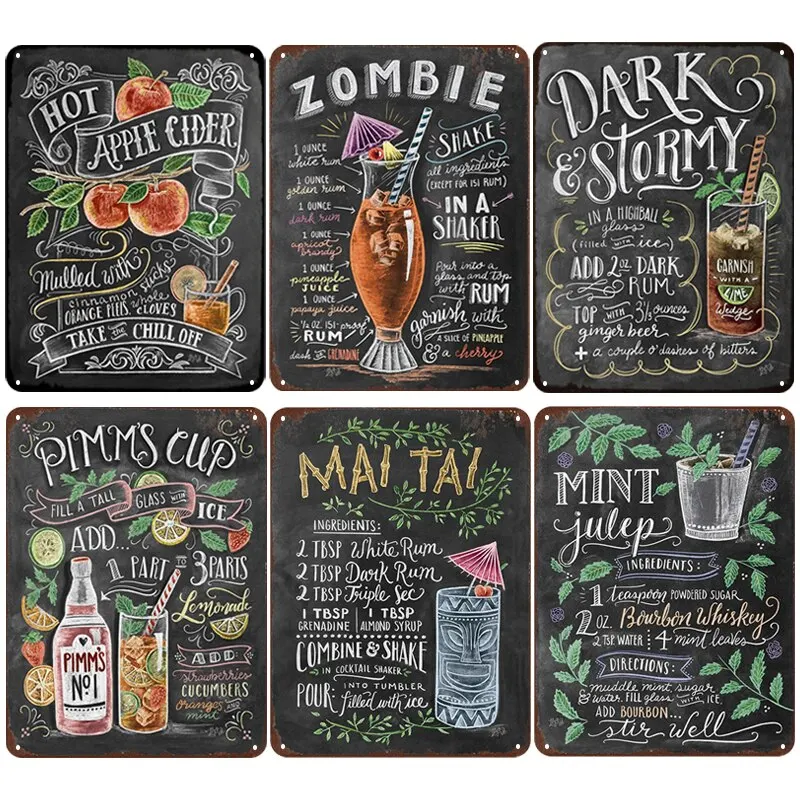 HOT
APPLE CIDER
Mulled with
cinnamon sticks
ORANGE PEELS, whole
CLOVES
TAKE the CHILL OFF
ZOMBIE
1 OUNCE
white rum
1 OUNCE
golden rum
1 OUNCE
dark rum
1 OUNCE
apricot
brandy
1 OUNCE
pineapple
JUICE
1 OUNCE
papaya juice
½ OZ. 151-proof
RUM
dash OF GRENADINE
SHAKE
all ingredients
(EXCEPT FOR 151 RUM)
IN A
SHAKER
Pour into a
glass and top
with RUM
garnish with
A SLICE OF PINEAPPLE
& a cherry
DARK
& STORMY
IN A HIGHBALL
glass
(filled WITH ice)
ADD 2 oz. DARK
RUM
TOP WITH 3½ ounces
ginger beer
+ a couple o' dashes of bitters
GARNISH
WITH A
LIME
Wedge
PIMM'S CUP
FILL A TALL GLASS WITH ICE
ADD...
1 PART TO 3 PARTS
Lemonade
ADD
strawberries
CUCUMBERS
oranges AND
mint
PIMM'S
Nº1
MAI TAI
INGREDIENTS:
2 TBSP White Rum
2 TBSP Dark Rum
2 TBSP Triple Sec
1 TBSP GRENADINE | 1 TBSP ALMOND SYRUP
COMBINE & SHAKE
IN COCKTAIL SHAKER
POUR: INTO TUMBLER
filled with ice
MINT
julep
INGREDIENTS:
1 teaspoon POWDERED SUGAR
2 OZ. Bourbon Whiskey
2 TSP WATER | 4 mint leaves
DIRECTIONS:
muddle mint, sugar
& water. FILL glass WITH ICE.
ADD BOURBON...
stir well